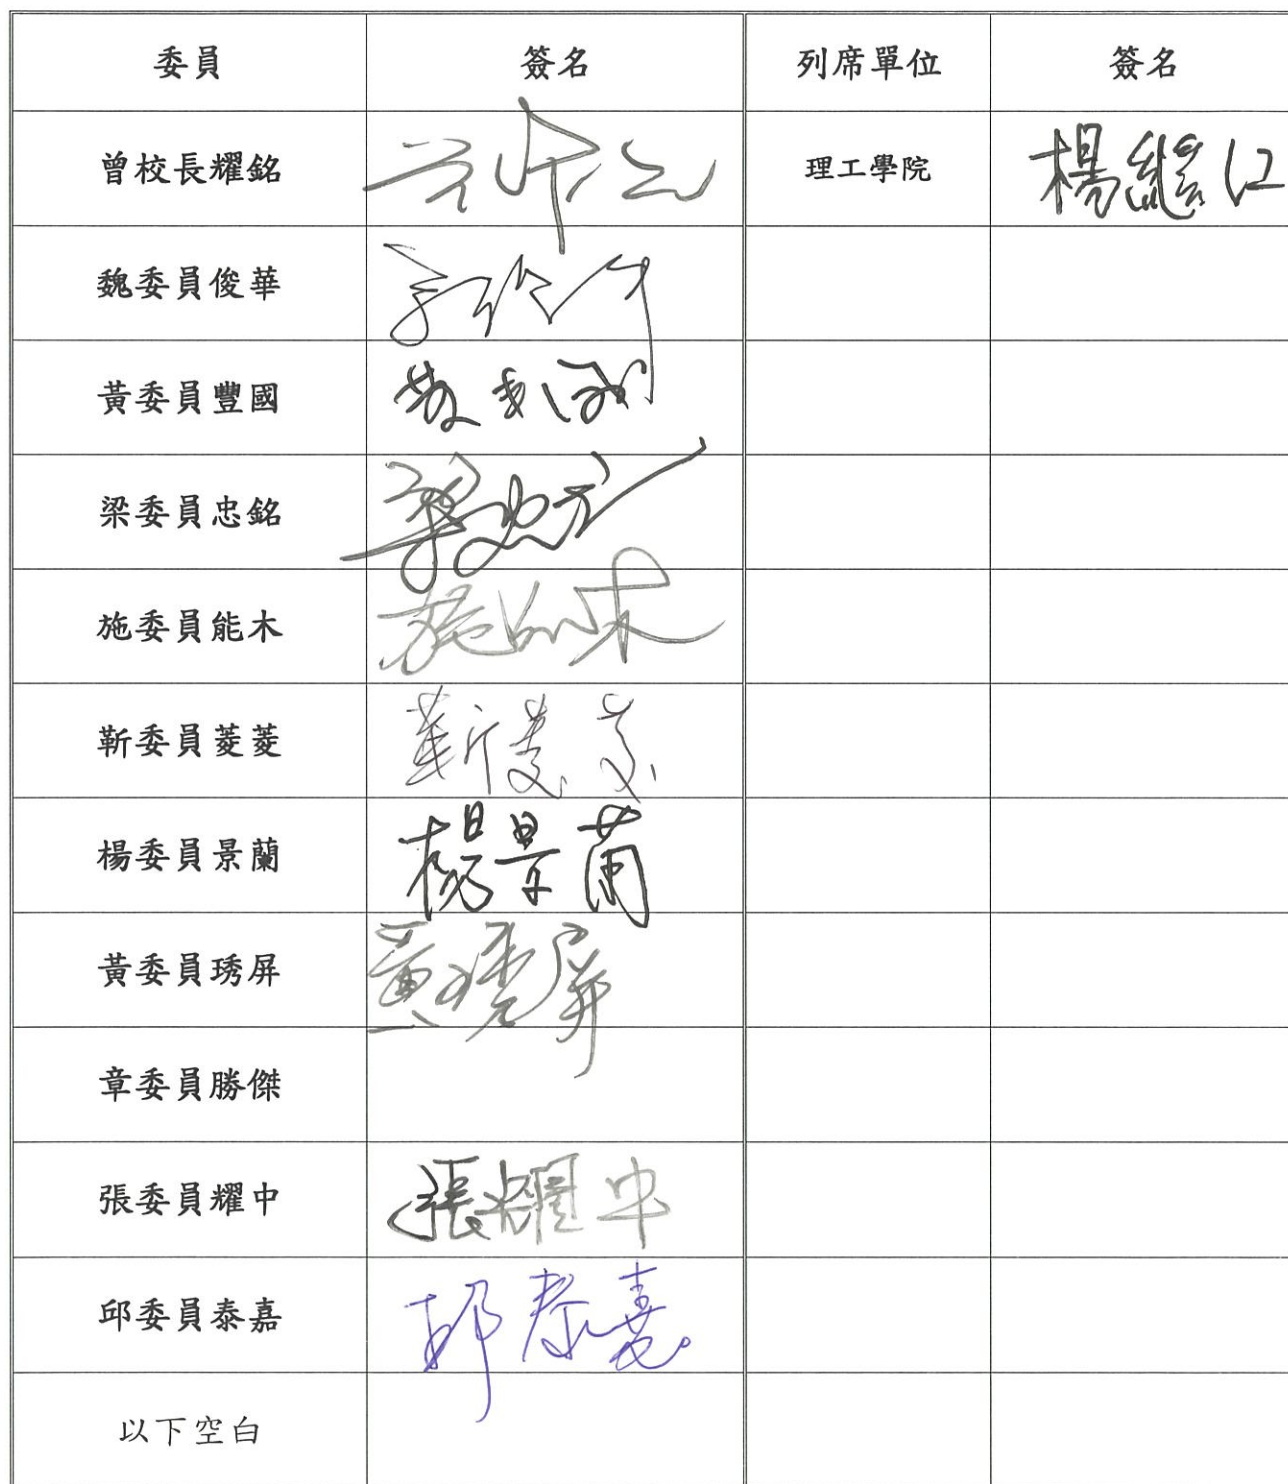 委員 簽名 列席單位 簽名
曾校長耀銘 理工學院 楊繼江
魏委員俊華
黃委員豐國
梁委員忠銘 梁忠銘
施委員能木 施能木
靳委員菱菱 靳菱菱
楊委員景蘭 楊景蘭
黃委員琇屏 黃琇屏
章委員勝傑
張委員耀中 張耀中
邱委員泰嘉 邱泰嘉
以下空白